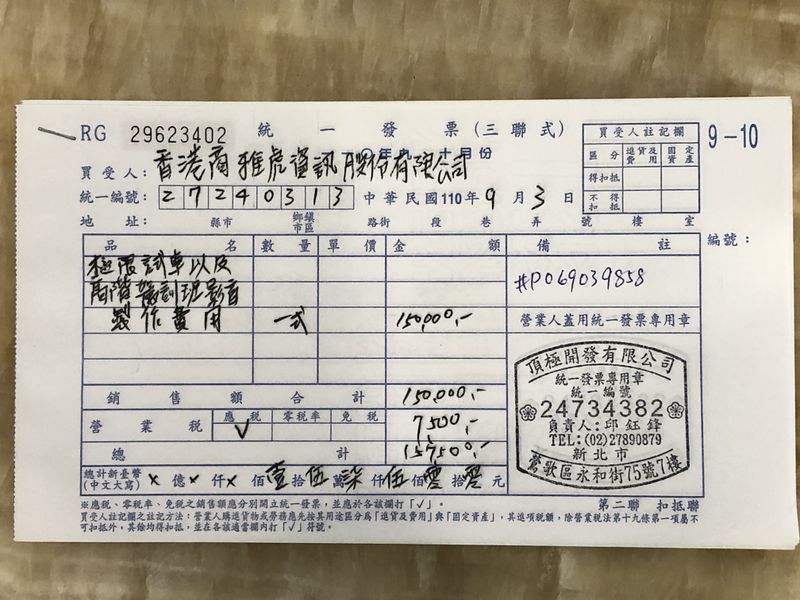 RG 29623402 統一發票(三聯式)
一〇年九、十月份
9-10
買受人: 香港商雅虎資訊股份有限公司
統一編號: 27240313 中華民國110年9月3日
地址: 縣市 鄉鎮市區 路街 段 巷 弄 號 樓 室
買受人註記欄
區分 進貨及費用 固定資產
得扣抵
不得扣抵
編號:
品名 數量 單價 金額 備註
極限試車以及
訓班影音
製作費用 一式 150,000,-
#P069039858
營業人蓋用統一發票專用章
銷售額合計 150,000,-
營業稅 應稅 零稅率 免稅 7,500,-
√
總計 157,500,-
總計新臺幣(中文大寫) × 億 × 仟 × 佰 壹 拾 伍 萬 柒 仟 伍 佰 零 拾 零 元
頂極開發有限公司
統一發票專用章
統一編號
24734382
負責人:邱鈺鋒
TEL:(02)27890879
新北市
鶯歌區永和街75號7樓
第二聯 扣抵聯
※應稅、零稅率、免稅之銷售額應分別開立統一發票,並應於各該欄打「√」。
買受人註記欄之註記方法:營業人購進貨物或勞務應先按其用途區分為「進貨及費用」與「固定資產」,其進項稅額,除營業稅法第十九條第一項屬不
可扣抵外,其餘均得扣抵,並在各該適當欄內打「√」符號。